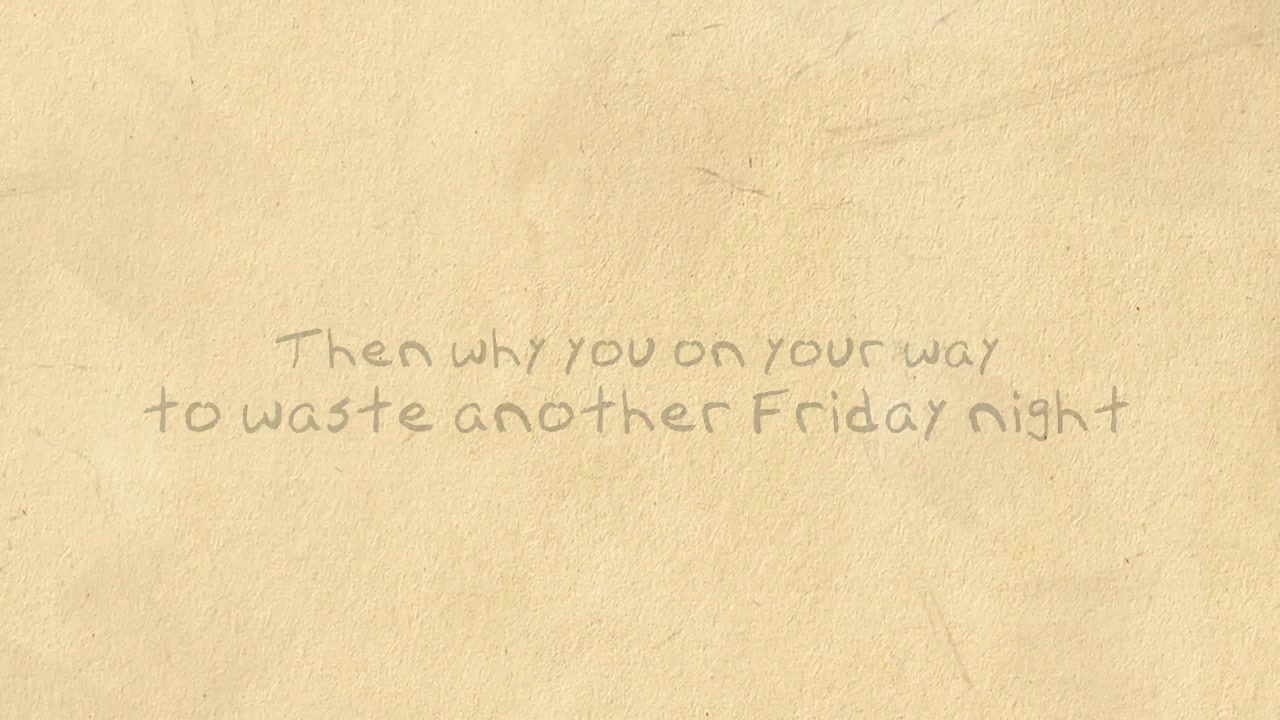 Then why you on your way
to waste another Friday night